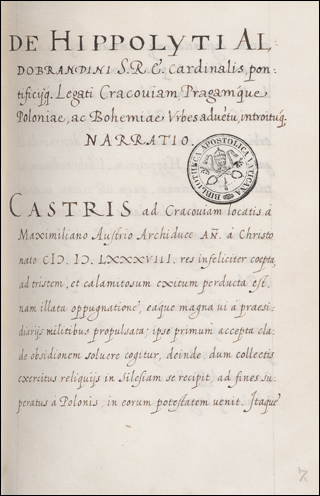 DE HIPPOLYTI AL
DOBRANDINI S.R.E. Cardinalis, pon-
tificijq́. Legati Cracouiam Pragamq́ue
Poloniae, ac Bohemiae Vrbes aduẽtu, introituq́.
NARRATIO.
BIBLIOTHECA APOSTOLICA VATICANA
CASTRIS ad Cracouiam locatis á
Maximiliano Austrio Archiduce AÑ. á Christo
nato CIƆ. IƆ. LXXXVIII. res infeliciter coepta,
ad tristem, et calamitosum exitum perducta est.
nam illata oppugnatione, eaque magna ui á praesi-
diarijs militibus propulsata; ipse primum accepta cla-
de obsidionem soluere cogitur, deinde dum collectis
exercitus reliquijs in Silesiam se recipit, ad fines su-
peratus á Polonis, in eorum potestatem uenit. Itaque